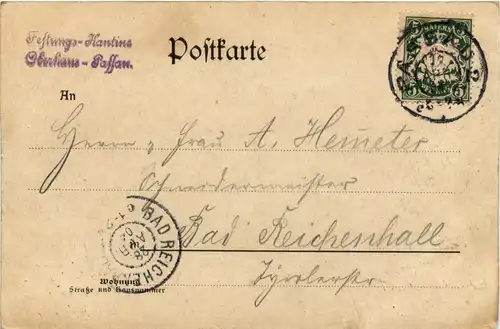 Festungs-Kantine
Oberhaus-Passau.
Postkarte
BAYERN
PASSAU 2
An
Herrn & Frau A. Hemeter
Schneidermeister
Bad Reichenhall
Tyrolerstr.
BAD REICHENHALL
Wohnung
Straße und Hausnummer